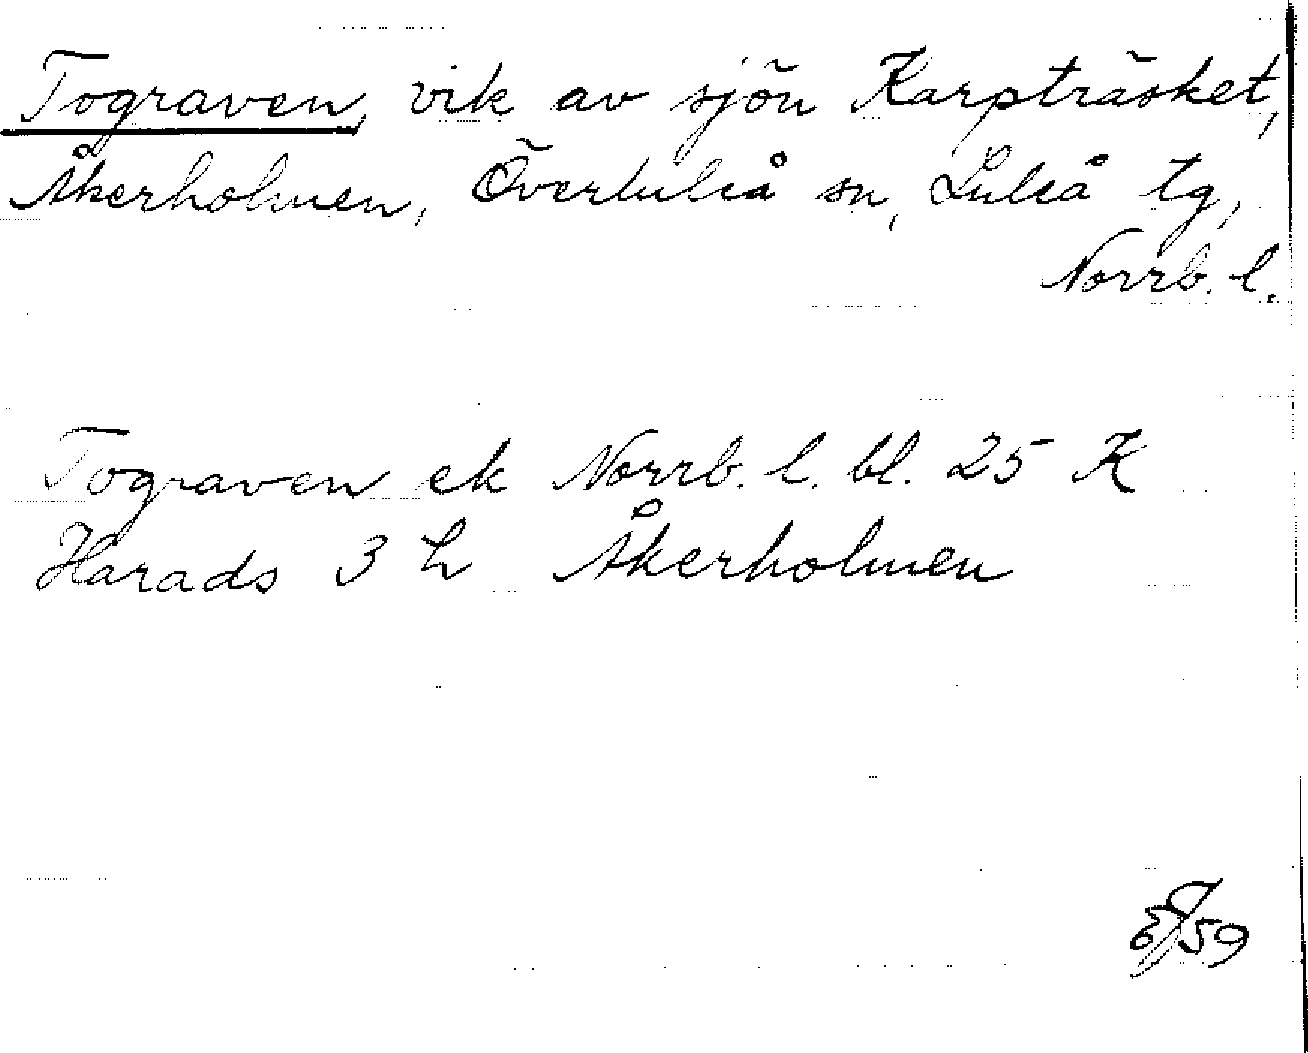 Tograven, vik av sjön Karpträsket,
Åkerholmen, Överluleå sn, Luleå tg,
Norrb. l.
Tograven ek Norrb. l. bl. 25 K
Harads 3 h Åkerholmen
59